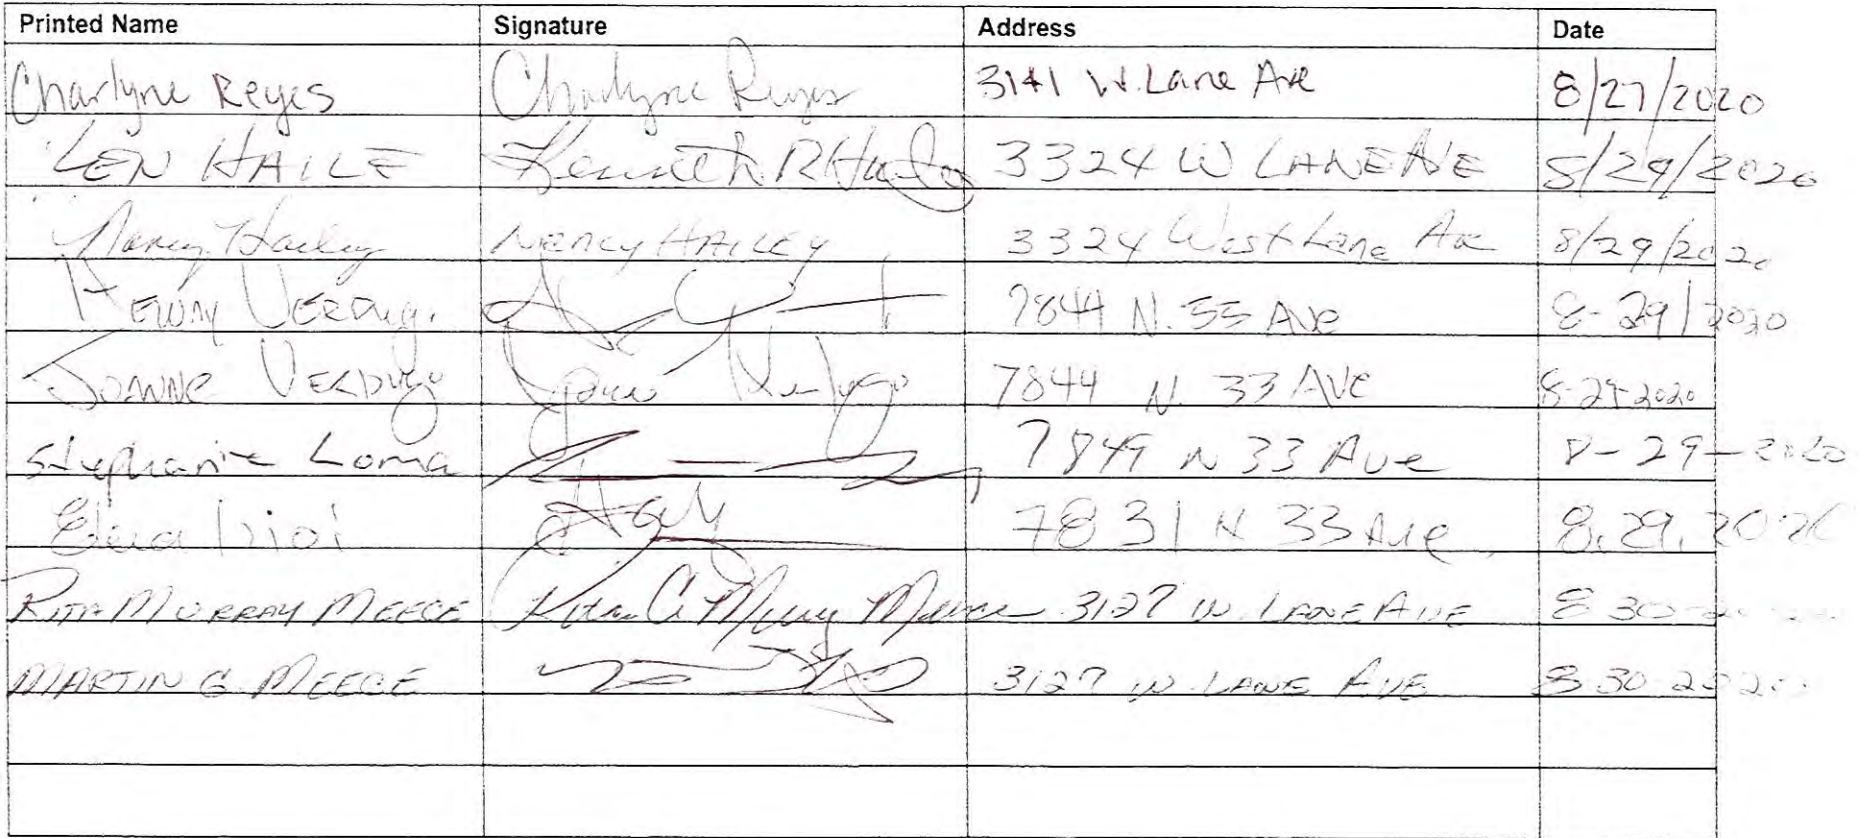 Printed Name Signature Address Date
Charlyne Reyes Charlyne Reyes 3141 W. Lane Ave 8/27/2020
KEN HAILE Kenneth R 3324 W LANE AVE 8/29/2020
Nancy Hailey NANCY HAILEY 3324 West Lane Ave 8/29/2020
VERDUGO 7844 N. 33 Ave 8-29/2020
JOANNE VERDUGO 7844 N. 33 AVE 8-29-2020
Stephanie Loma 7849 N 33 Ave 8-29-2020
7831 N 33 Ave 8.29.2020
RITA MURRAY MEECE Rita A Murray Meece 3127 W. LANE AVE 8 30
MARTIN G. MEECE 3127 W LANE AVE 8 30 2020